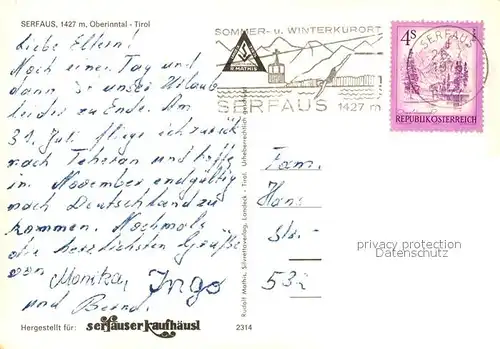 SERFAUS, 1427 m, Oberinntal - Tirol
Liebe Eltern!
Noch einen Tag und
dann ist unser Urlaub
leider zu Ende. Am
31. Juli fliege ich zurück
nach Teheran und hoffe
im November endgültig
nach Deutschland zu
kommen. Nochmals
die herzlichsten Grüße
von Monika, Ingo
und Bernd.
Hergestellt für: serfauser kaufhäusl
2314
Rudolf Mathis, Silvrettaverlag, Landeck - Tirol. Urheberrechtlich
R. MATHIS
SOMMER- u. WINTERKURORT
SERFAUS 1427 m
4S
REPUBLIK ÖSTERREICH
SERFAUS
Fam.
Hans
Str.-
532
privacy protection
Datenschutz